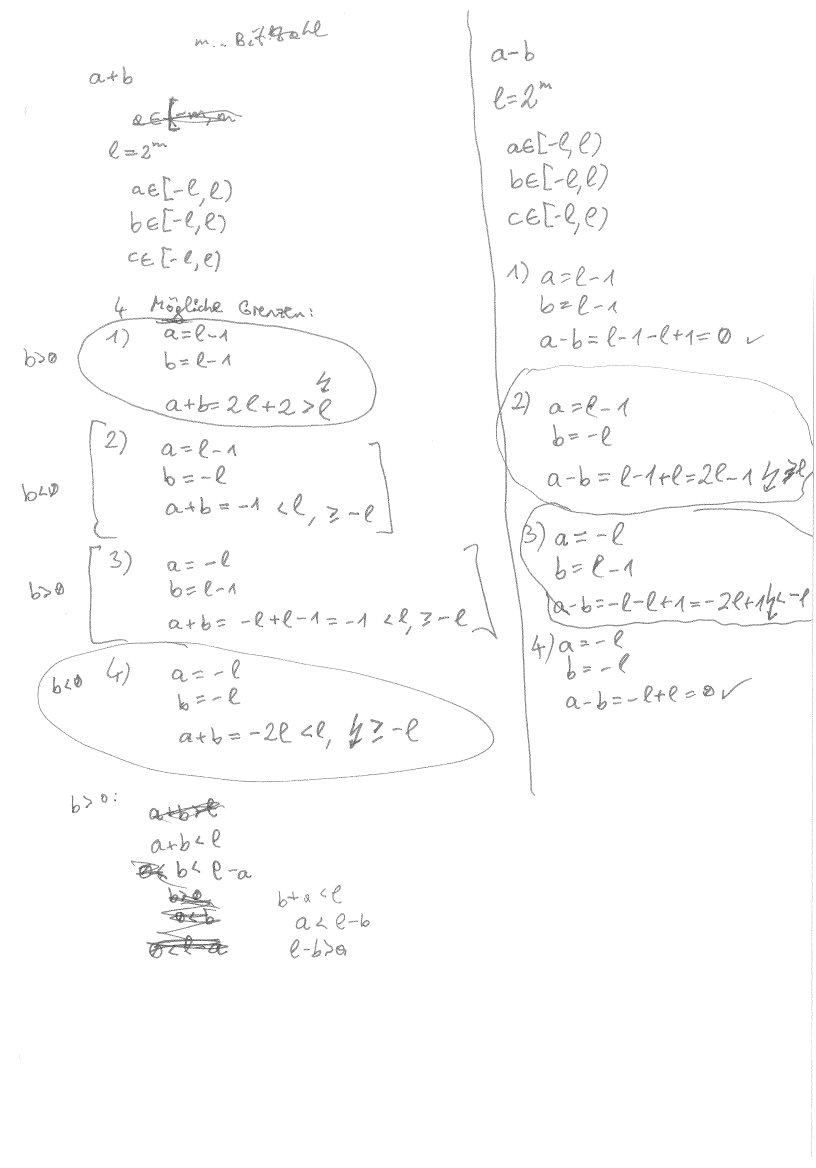 m.. Bitzahl
a+b
a∈[-m, m
l=2^m
a∈[-l, l)
b∈[-l, l)
c∈[-l, l)
4 Mögliche Grenzen:
1) a=l-1
b>0
b=l-1
a+b=2l+2>l ↯
2) a=l-1
b<0
b=-l
a+b=-1 <l, ≥-l
3) a=-l
b>0
b=l-1
a+b=-l+l-1=-1 <l, ≥-l
b<0 4) a=-l
b=-l
a+b=-2l<l, ↯ ≥-l
b>0:
a+b>l
a+b<l
0< b<l-a
b>0
0<b
0<l-a
b+a<l
a<l-b
l-b>a
a-b
l=2^m
a∈[-l, l)
b∈[-l, l)
c∈[-l, l)
1) a=l-1
b=l-1
a-b=l-1-l+1=0 ✓
2) a=l-1
b=-l
a-b=l-1+l=2l-1 ↯ ≥l
3) a=-l
b=l-1
a-b=-l-l+1=-2l+1 ↯ <-l
4) a=-l
b=-l
a-b=-l+l=0 ✓